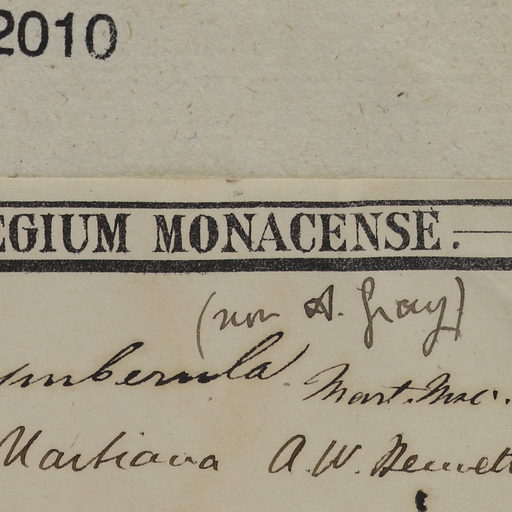 2010
EGIUM MONACENSE.
(non A. Gray)
Mart. Msc.
Martiana A. W. Bennett